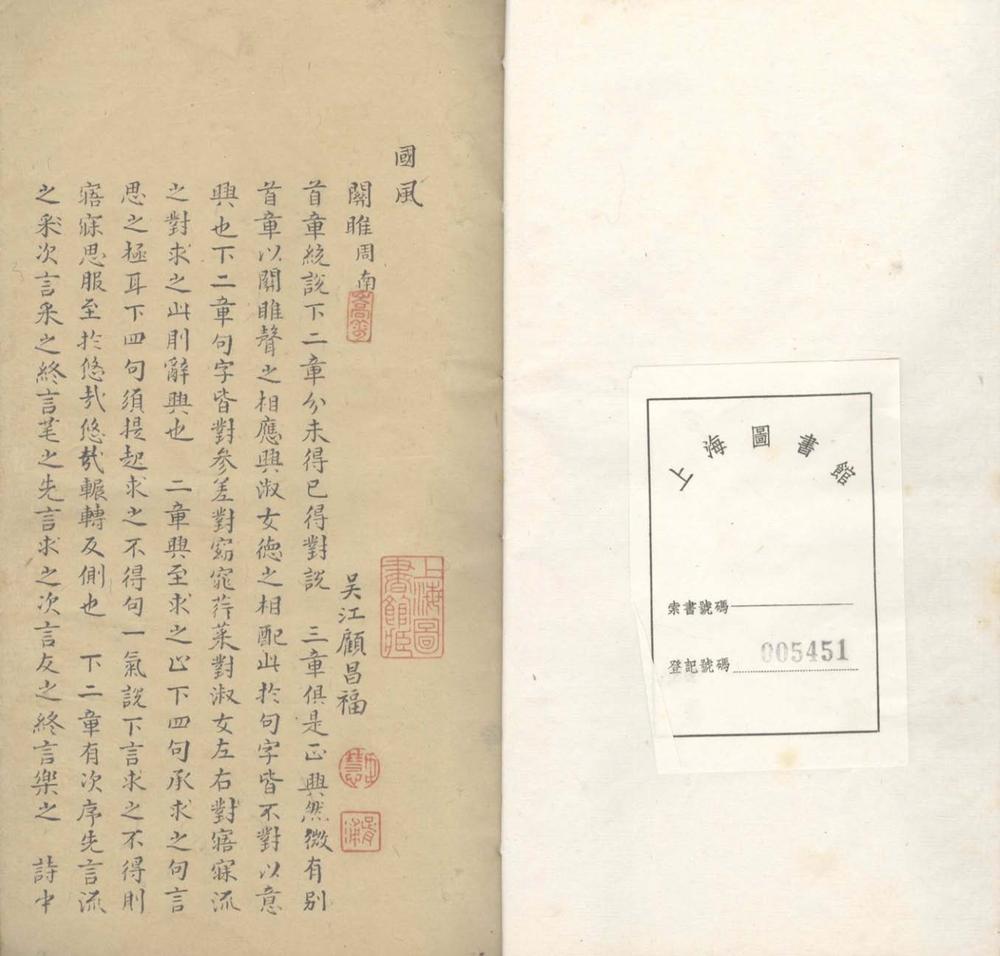 上海圖書館
索書號碼
登記號碼 005451
國風
上海圖書館藏
關雎周南
吳江顧昌福
首章統說下二章分未得已得對說 三章俱是正興然微有別
首章以關雎聲之相應興淑女德之相配此於句字皆不對以意
興也下二章句字皆對參差對窈窕荇菜對淑女左右對寤寐流
之對求之此則辭興也 二章興至求之止下四句承求之句言
思之極耳下四句須提起求之不得句一氣說下言求之不得則
寤寐思服至於悠哉悠哉輾轉反側也 下二章有次序先言流
之采次言采之終言芼之先言求之次言友之終言樂之 詩中